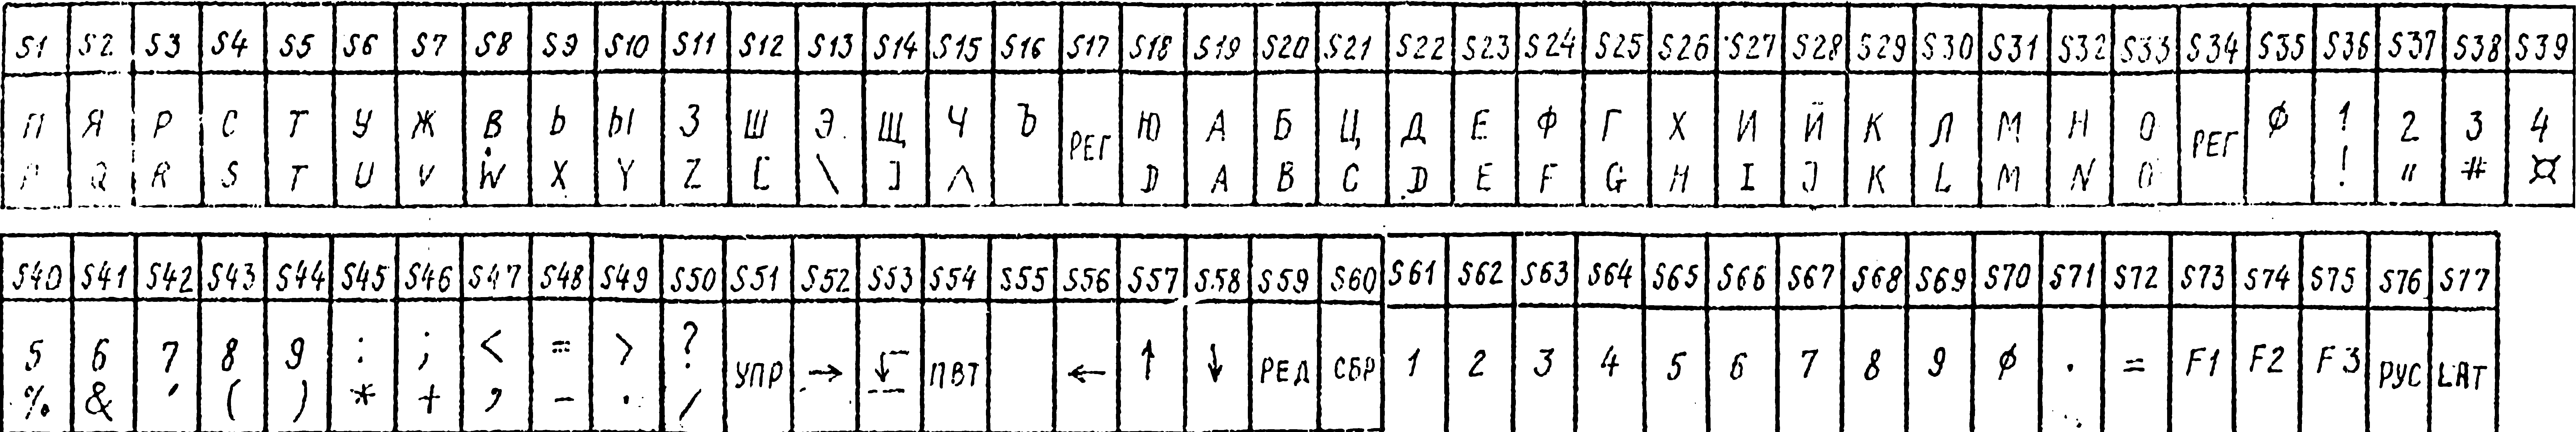 S1 S2 S3 S4 S5 S6 S7 S8 S9 S10 S11 S12 S13 S14 S15 S16 S17 S18 S19 S20 S21 S22 S23 S24 S25 S26 S27 S28 S29 S30 S31 S32 S33 S34 S35 S36 S37 S38 S39
П Я Р С Т У Ж В Ь Ы З Ш Э Щ Ч Ъ РЕГ Ю А Б Ц Д Е Ф Г Х И Й К Л М Н О РЕГ ∅ 1 2 3 4
P Q R S T U V W X Y Z [ \ ] ^ D A B C D E F G H I J K L M N O ! " # ¤
S40 S41 S42 S43 S44 S45 S46 S47 S48 S49 S50 S51 S52 S53 S54 S55 S56 S57 S58 S59 S60 S61 S62 S63 S64 S65 S66 S67 S68 S69 S70 S71 S72 S73 S74 S75 S76 S77
5 6 7 8 9 : ; < = > ? УПР → ↓ ПВТ ← ↑ ↓ РЕД СБР 1 2 3 4 5 6 7 8 9 ∅ . = F1 F2 F3 РУС LAT
% & ' ( ) * + , - . /